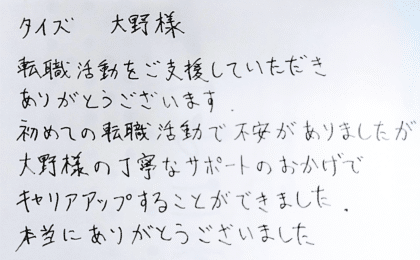 タイズ　大野様
転職活動をご支援していただき
ありがとうございます.
初めての転職活動で不安がありましたが
大野様の丁寧なサポートのおかげで
キャリアアップすることができました.
本当にありがとうございました